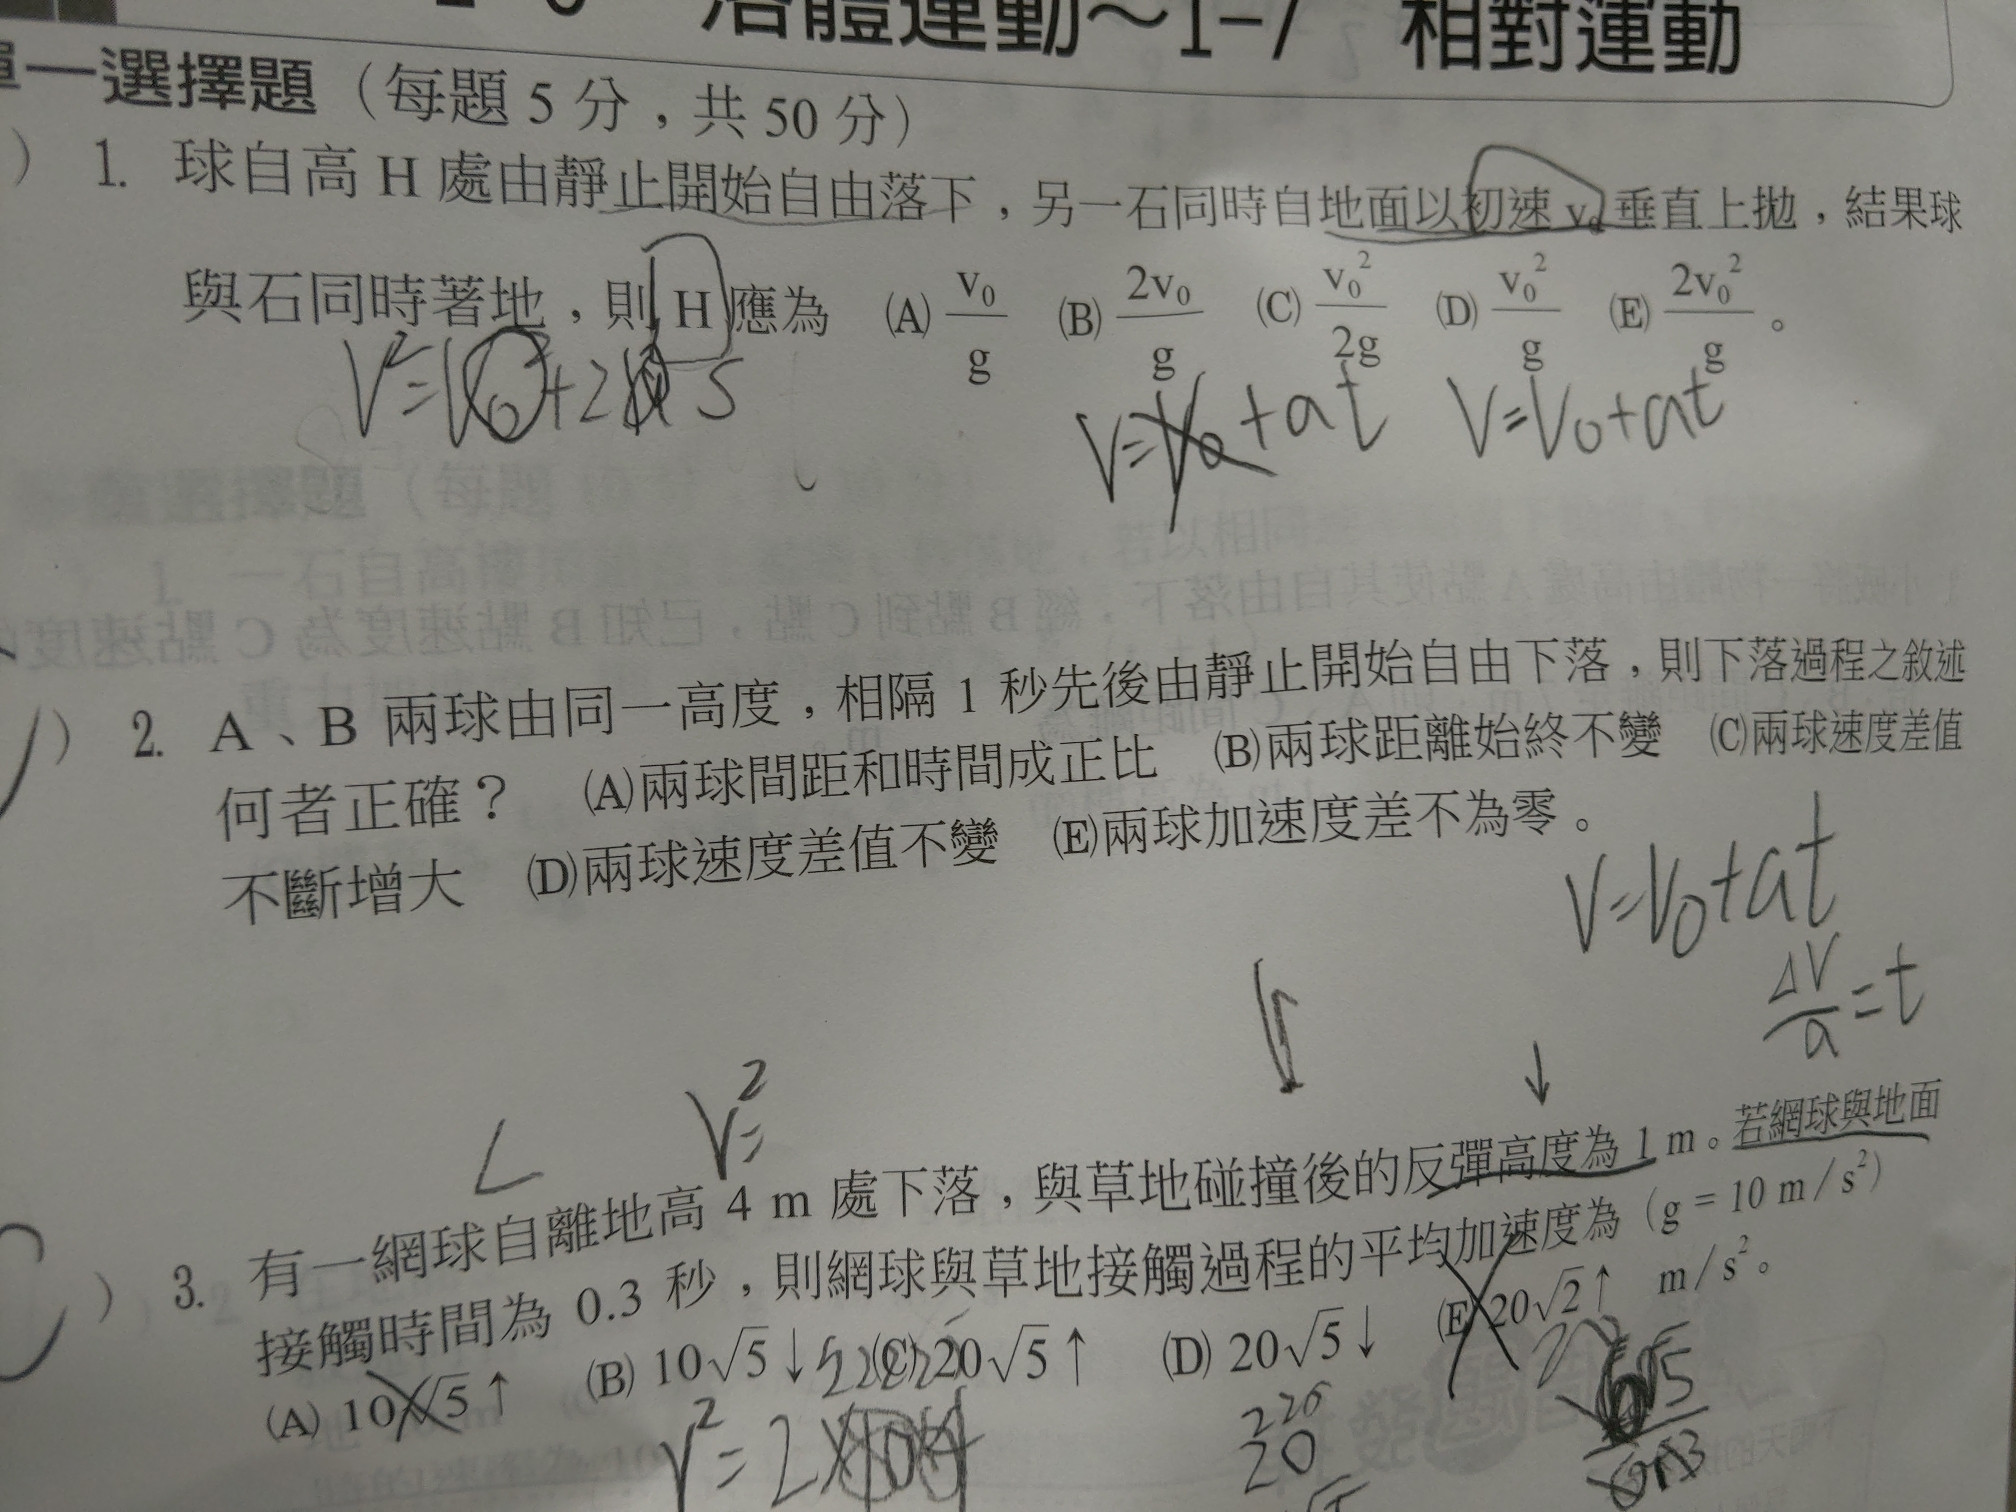 落體運動～1-7 相對運動
單一選擇題（每題 5 分，共 50 分）
) 1. 球自高 H 處由靜止開始自由落下，另一石同時自地面以初速 v₀ 垂直上拋，結果球
與石同時著地，則 H 應為 (A) v₀/g (B) 2v₀/g (C) v₀²/2g (D) v₀²/g (E) 2v₀²/g 。
V²=V₀²+2 S
V=V₀+at V=V₀+at
) 2. A、B 兩球由同一高度，相隔 1 秒先後由靜止開始自由下落，則下落過程之敘述
何者正確？ (A)兩球間距和時間成正比 (B)兩球距離始終不變 (C)兩球速度差值
不斷增大 (D)兩球速度差值不變 (E)兩球加速度差不為零。
V=V₀+at
ΔV/a=t
V²=
↓
) 3. 有一網球自離地高 4 m 處下落，與草地碰撞後的反彈高度為 1 m。若網球與地面
接觸時間為 0.3 秒，則網球與草地接觸過程的平均加速度為（g = 10 m/s²）
(A) 10√5↑ (B) 10√5↓ (C) 20√5↑ (D) 20√5↓ (E) 20√2↑ m/s²。
V²=2×10×4
20